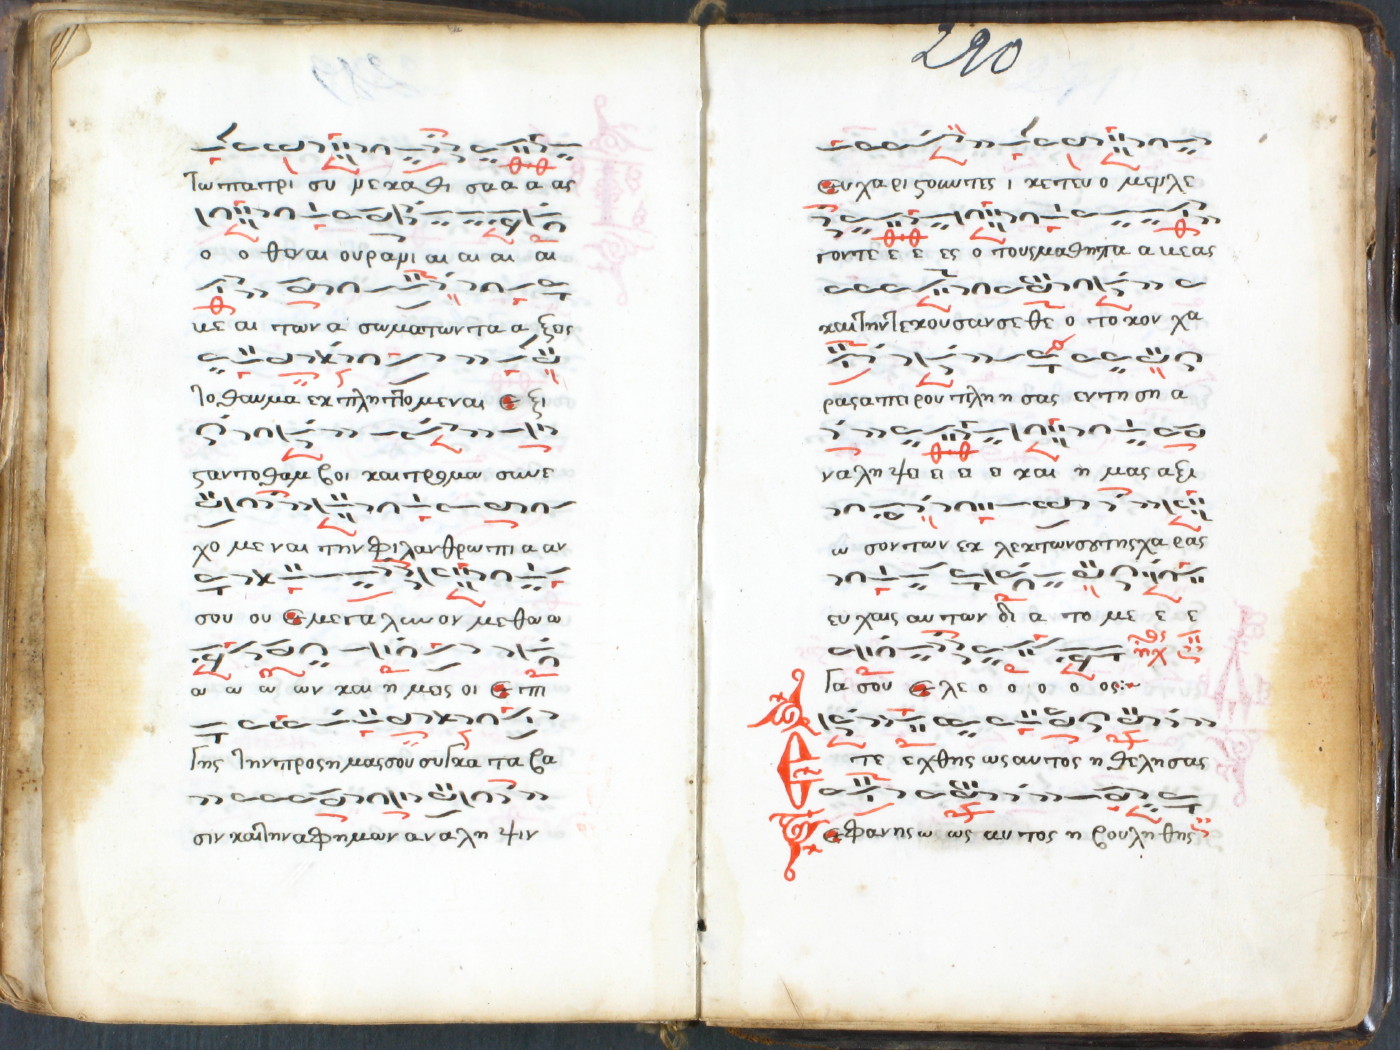 τω πατρι συ γε κα θι σα α α ας
ο ο θεν αι ου ρα νι αι αι αι αι
με αι των α σω μα των τα α ξεις
το θαυμα εκ πλη ττο με ναι ε ξι
σταν το θαμ βοι και τρο μω συν ε
χο με ναι την φι λαν θρω πι α αν
σου ου ε με γα λυν ον με θω ω
ω ω ω ων και η μεις οι ε πι
γης την προς η μας σου συγ κα τα βα
σιν και την αφ η μων α να λη ψιν
290
ευ χα ρι στουντες ι κε τευ ο μεν λε
γοντε ε ε ες ο τους μα θη τα α με ας
και την τε κου σαν σε θε ο το κον χα
ρας α πει ρου πλη η σας εν τη ση α
να λη ψει ει ει ει και η μας α ξι
ω σον των εκ λεκτων σου της χα ρας
ευ χαις αυ των δι α το με ε ε
γα σου ε λε ο ο ο ο ος:~
ηχος
Ε τε εχ θης ως αυ τος η θε λη σας
ε φα νης ω ως αυ τος η βου λη θης